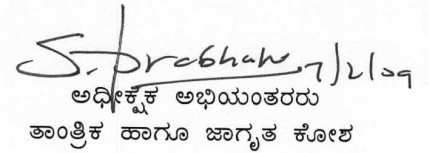 S. Prabhak 7/2/09
ಅಧೀಕ್ಷಕ ಅಭಿಯಂತರರು
ತಾಂತ್ರಿಕ ಹಾಗೂ ಜಾಗೃತ ಕೋಶ